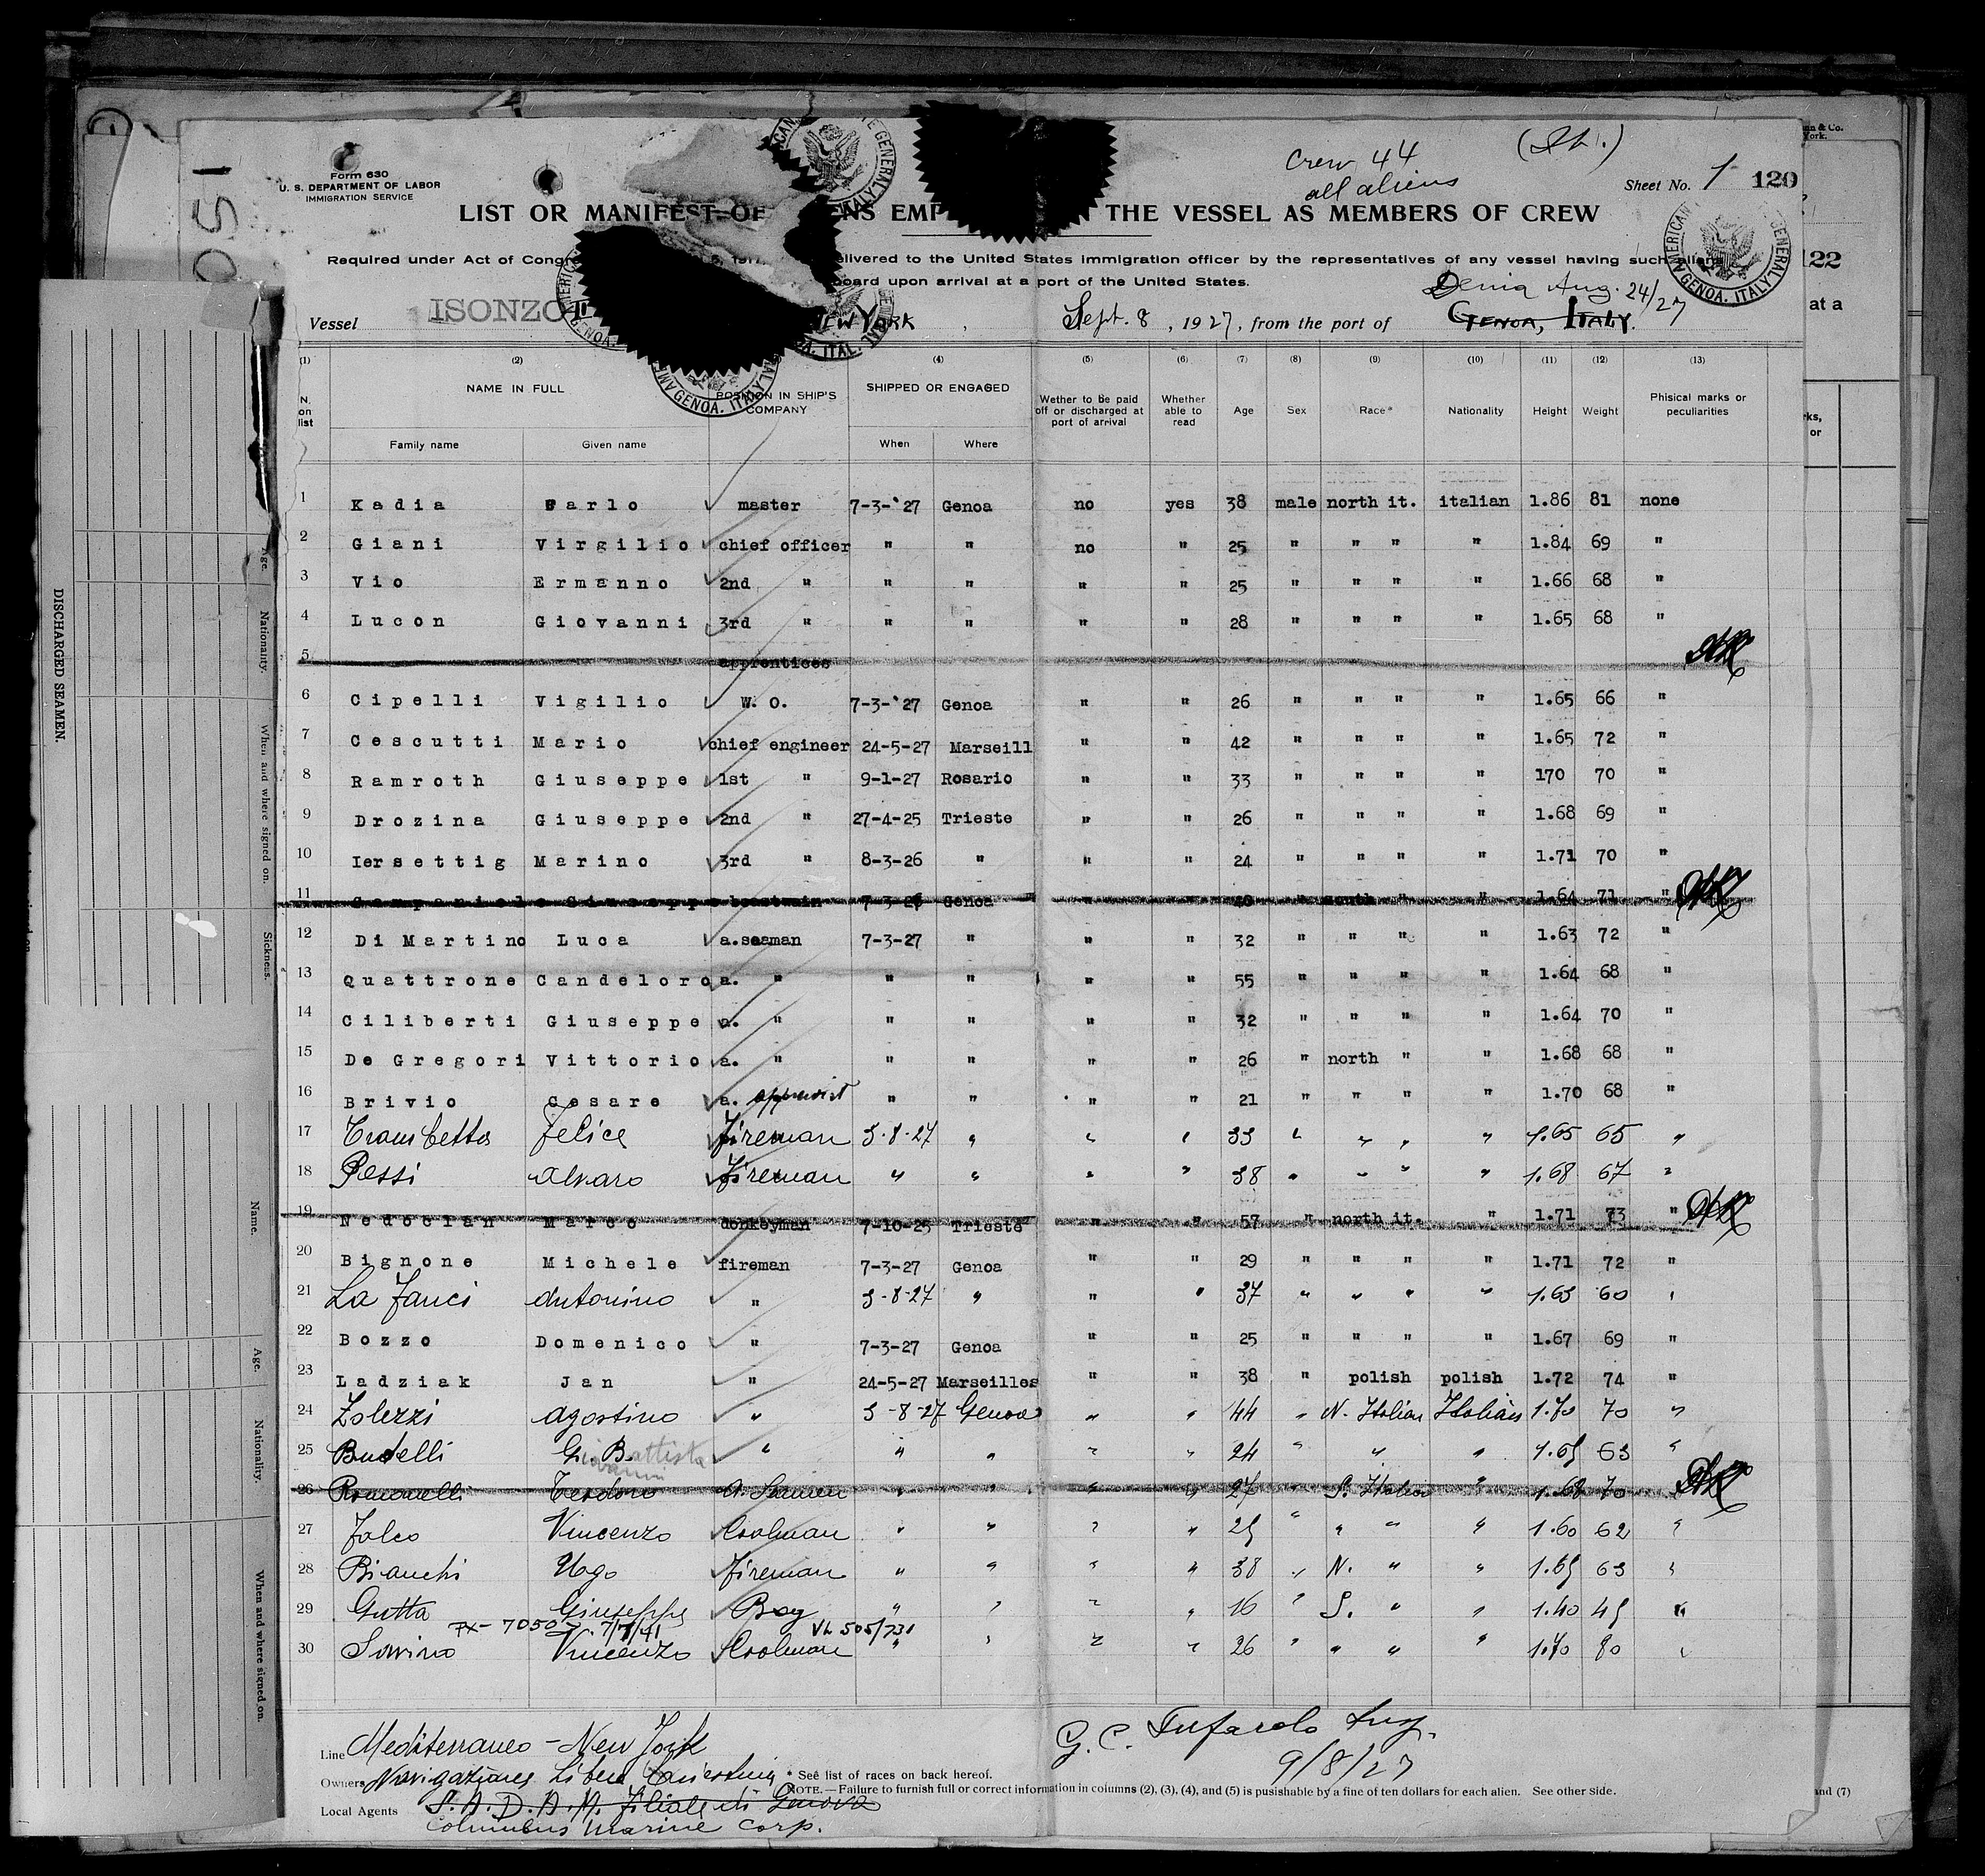 Form 630
U. S. DEPARTMENT OF LABOR
IMMIGRATION SERVICE
Crew 44
all aliens
Sheet No. 1 120
LIST OR MANIFEST OF THE VESSEL AS MEMBERS OF CREW
Required under Act of Congre delivered to the United States immigration officer by the representatives of any vessel having such aliens
board upon arrival at a port of the United States.
Denia Aug. 24/27
Vessel ISONZO NEW YORK, Sept. 8, 1927, from the port of GENOA, ITALY.
(1) (2) (4) (5) (6) (7) (8) (9) (10) (11) (12) (13)
N. on list NAME IN FULL POSITION IN SHIP'S COMPANY SHIPPED OR ENGAGED Wether to be paid off or discharged at port of arrival Whether able to read Age Sex Race* Nationality Height Weight Phisical marks or peculiarities
Family name Given name When Where
1 Kadia Carlo master 7-3-'27 Genoa no yes 38 male north it. italian 1.86 81 none
2 Giani Virgilio chief officer " " no " 25 " " " " 1.84 69 "
3 Vio Ermanno 2nd " " " " " 25 " " " " 1.66 68 "
4 Lucon Giovanni 3rd " " " " " 28 " " " " 1.65 68 "
5 apprentices
6 Cipelli Vigilio W. O. 7-3-'27 Genoa " " 26 " " " " 1.65 66 "
7 Cescutti Mario chief engineer 24-5-27 Marseill " " 42 " " " " 1.65 72 "
8 Ramroth Giuseppe 1st " 9-1-27 Rosario " " 33 " " " " 170 70 "
9 Drozina Giuseppe 2nd " 27-4-25 Trieste " " 26 " " " " 1.68 69 "
10 Iersettig Marino 3rd " 8-3-26 " " " 24 " " " " 1.71 70 "
11 Giuseppe boatswain 7-3-26 Genoa " " 40 " south " " 1.64 71 "
12 Di Martino Luca a.seaman 7-3-27 " " " 32 " " " " 1.63 72 "
13 Quattrone Candeloro a. " " " " " 55 " " " " 1.64 68 "
14 Ciliberti Giuseppe a. " " " " " 32 " " " " 1.64 70 "
15 De Gregori Vittorio a. " " " " " 26 " north " " 1.68 68 "
16 Brivio Cesare a. " " " " 21 " " " " 1.70 68 "
17 Trombetta Felice fireman 3-8-27 " " " 33 " " " " 1.65 65 "
18 Pessi Alvaro fireman " " " " 38 " " " " 1.68 67 "
19 Nedoclan Marco donkeyman 7-10-25 Trieste " " 57 " north it. " 1.71 73 "
20 Bignone Michele fireman 7-3-27 Genoa " " 29 " " " " 1.71 72 "
21 La Fauci Antonino " 3-8-27 " " " 37 " " " " 1.63 60 "
22 Bozzo Domenico " 7-3-27 Genoa " " 25 " " " " 1.67 69 "
23 Ladziak Jan " 24-5-27 Marseilles " " 38 " polish polish 1.72 74 "
24 Zolezzi Agostino " 3-8-27 Genoa " " 44 " N. Italian Italian 1.70 70 "
25 Budelli Giovanni Battista " " " " " 24 " " " 1.65 63 "
26 Romanelli Teodoro A. Seamen " " " " 27 " S. Italian " 1.68 70
27 Falco Vincenzo Coolman " " " " 25 " " " " 1.60 62 "
28 Bianchi Ugo Fireman " " " " 38 " N. " " 1.65 63 "
29 Gutta Giuseppe Boy " " " " 16 " S. " " 1.40 45 "
7/7/41 VL 505/731
30 Savino Vincenzo Coolman " " " " 26 " " " " 1.70 80 "
Line Mediterraneo - New York
G. C. Tufarolo
9/8/27
Owners Navigazione Libera Triestina * See list of races on back hereof.
NOTE.—Failure to furnish full or correct information in columns (2), (3), (4), and (5) is pusishable by a fine of ten dollars for each alien. See other side.
Local Agents S.A.D.A.M. Filiale di Genova
Columbus Marine Corp.
DISCHARGED SEAMEN.
Age.
Nationanty.
When and where signed on.
Sickness.
Name.
Age.
Nationality.
When and where signed on.
AMERICAN GENERAL GENOA, ITALY
122
at a
and (7)